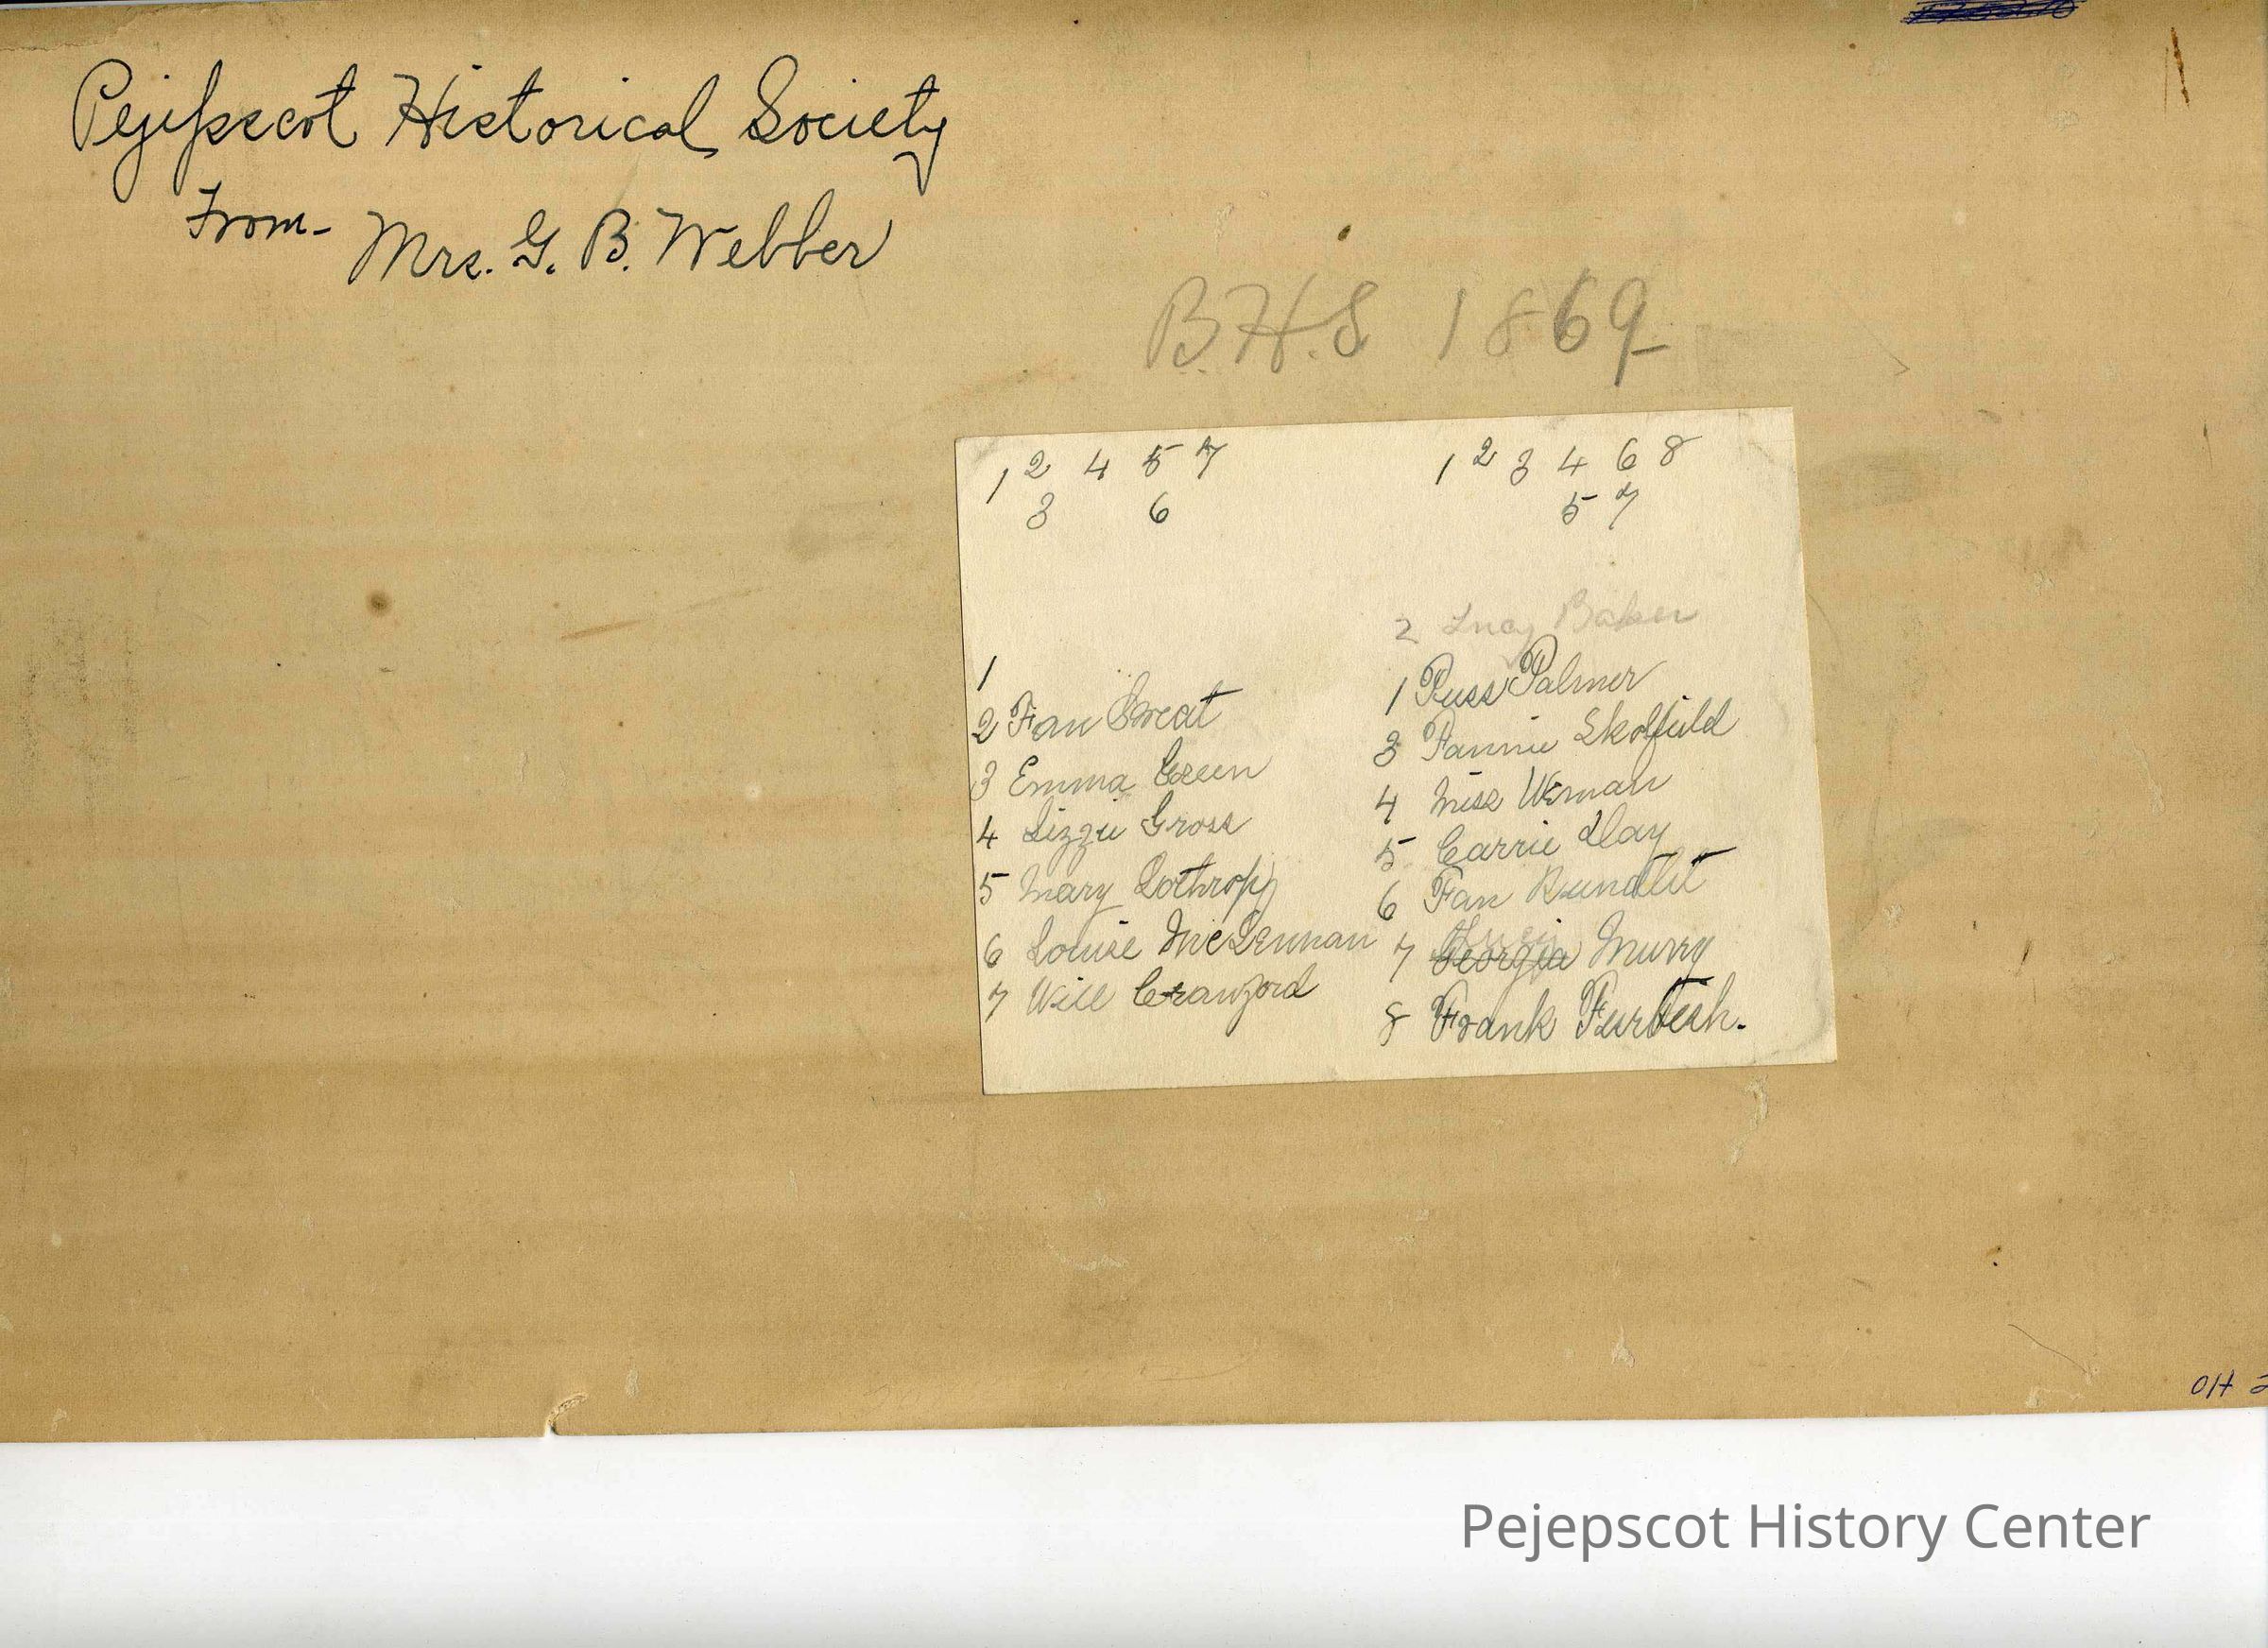 Pejepscot Historical Society
From- Mrs. G. B. Webber
B.H.S 1869
1 2 4 5 7
3 6
1 2 3 4 6 8
5 7
1
2 Fan Sweat
3 Emma Green
4 Lizzie Gross
5 Mary Lothrop
6 Louise McLennan
7 Will Crawford
2 Lucy Baker
1 Russ Palmer
3 Fannie Skolfield
4 Miss Weman
5 Carrie Day
6 Fan Rundlit
7 Georgia Murry
8 Frank Furbish.
OH 2
Pejepscot History Center